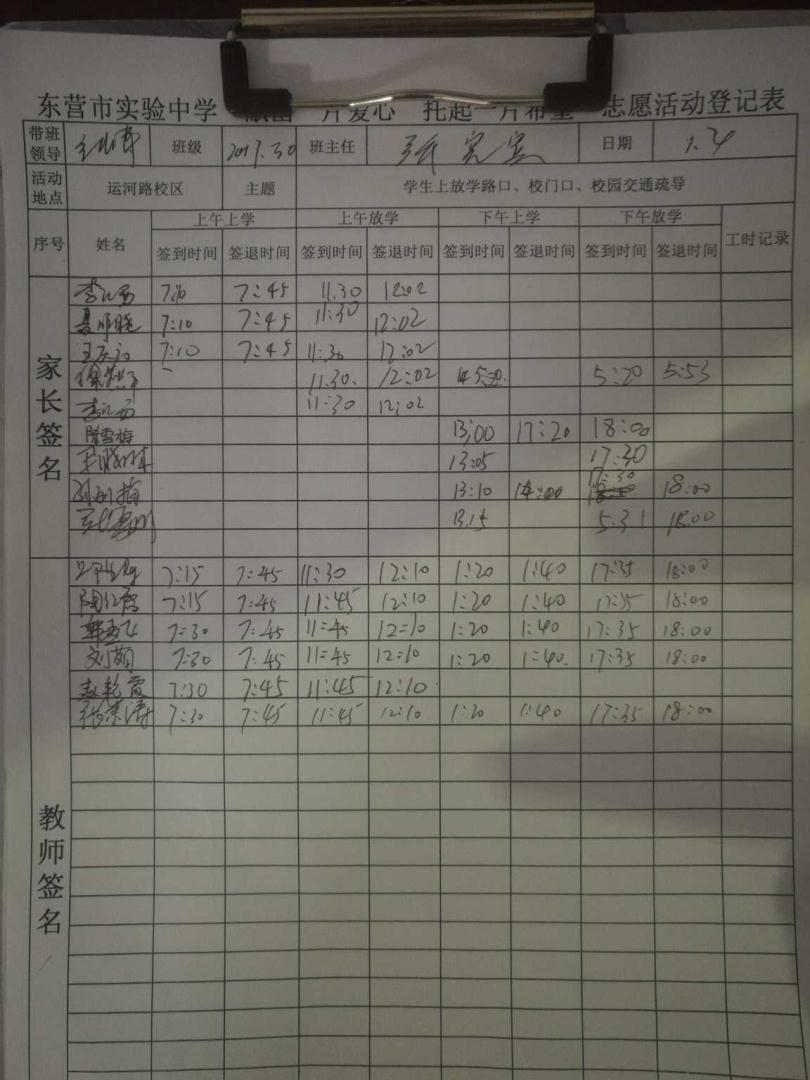 东营市实验中学 片爱心 托起一片希望 志愿活动登记表
带班领导 班级 2017.30 班主任 张宾宾 日期 1.4
活动地点 运河路校区 主题 学生上放学路口、校门口、校园交通疏导
序号 姓名 上午上学 上午放学 下午上学 下午放学 工时记录
签到时间 签退时间 签到时间 签退时间 签到时间 签退时间 签到时间 签退时间
家长签名
7:45 11.30 12:02
7:10 7:45 11:30 12:02
7:10 7:45 11:30 12:02
11.30. 12:02 5:20 5:53
11:30 12:02
13:00 17:20 18:00
13:05 17:30
13:10 14:00 17:30 18:00
13.15 5.31 18:00
教师签名
7:15 7:45 11:30 12:10 1:20 1:40 17:35 18:00
7:15 7:45 11:45 12:10 1:20 1:40 17:35 18:00
7:30 7:45 11:45 12:10 1:20 1:40 17:35 18:00
刘萌 7:30 7:45 11:45 12:10 1:20 1:40. 17:35 18:00
赵艳霞 7:30 7:45 11:45 12:10
张荣涛 7:30 7:45 11:45 12:10 1:20 1:40 17:35 18:00